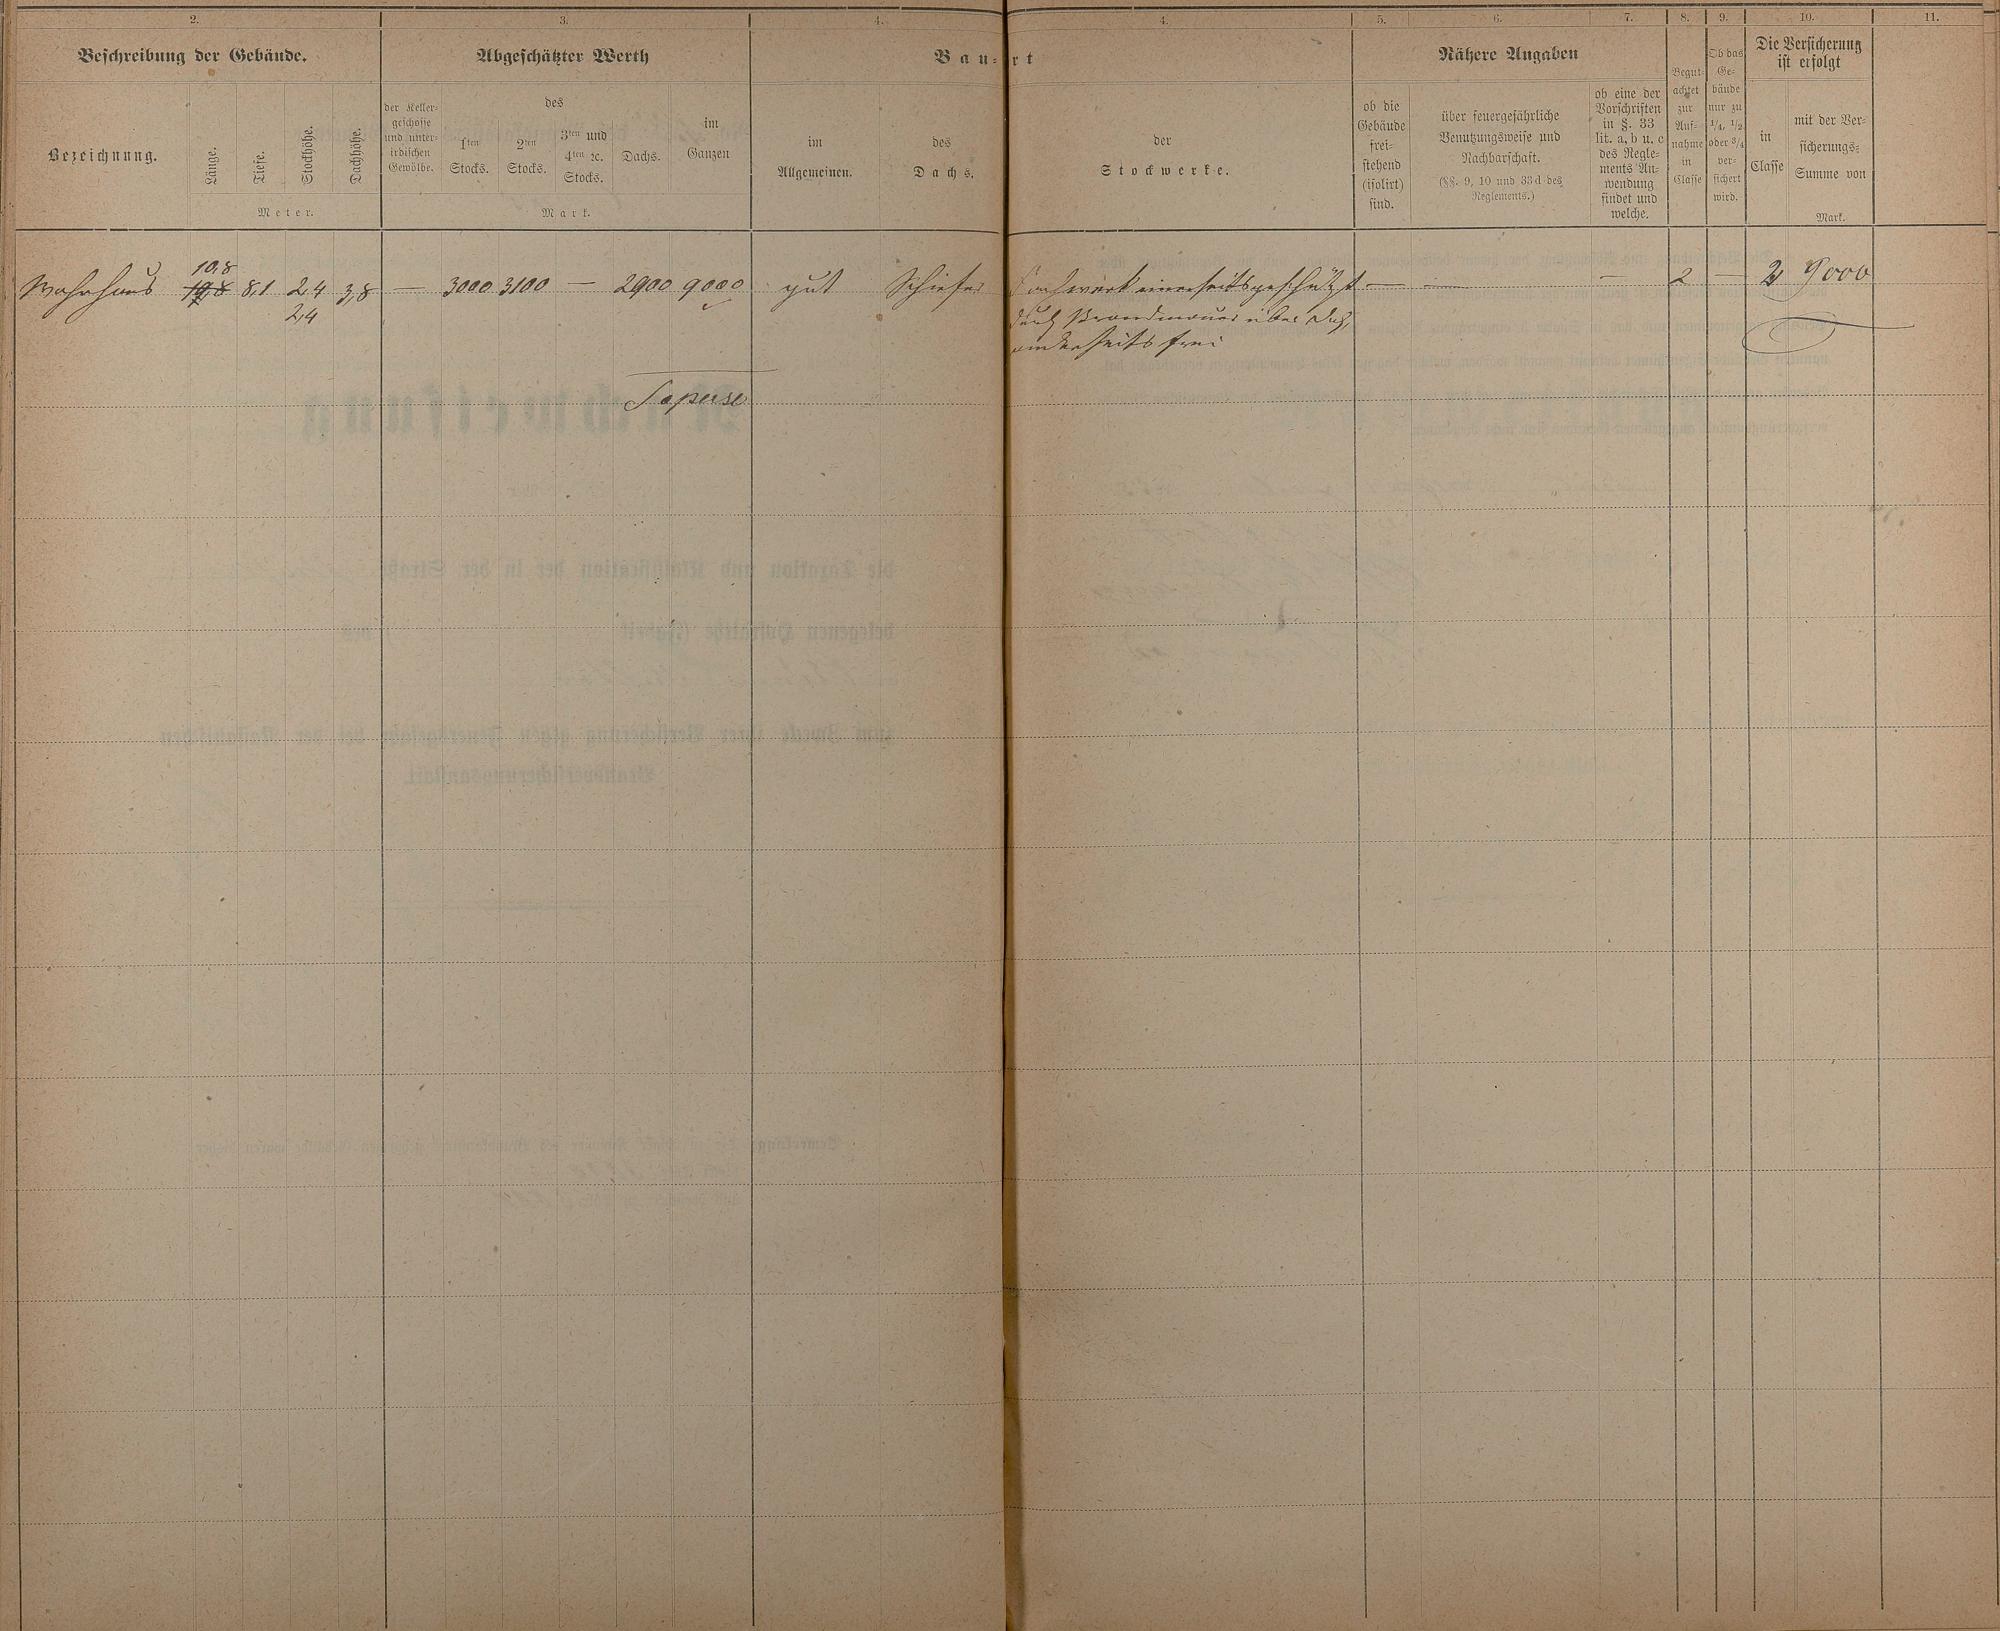 2. 3. 4. 4. 5. 6. 7. 8. 9. 10. 11.
Beschreibung der Gebäude.
Abgeschätzter Werth
Bau-Art
Nähere Angaben
Die Versicherung
ist erfolgt
Bezeichnung.
Länge.
Tiefe.
Stockhöhe.
Dachhöhe.
Meter.
der Keller-
geschosse
und unter-
irdischen
Gewölbe.
des
1ten
Stocks.
2ten
Stocks.
3ten und
4ten ꝛc.
Stocks.
Dachs.
im
Ganzen
Mark.
im
Allgemeinen.
des
Dachs.
der
Stockwerke.
ob die
Gebäude
frei-
stehend
(isolirt)
sind.
über feuergefährliche
Benutzungsweise und
Nachbarschaft.
(§§. 9, 10 und 33 d des
Reglements.)
ob eine der
Vorschriften
in §. 33
lit. a, b u. c
des Regle-
ments An-
wendung
findet und
welche.
Begut-
achtet
zur
Auf-
nahme
in
Classe
Ob das
Ge-
bäude
nur zu
1/4, 1/2
oder 3/4
ver-
sichert
wird.
in
Classe
mit der Ver-
sicherungs-
Summe von
Mark.
10,8
Wohnhaus 8,1 2,4 3,8 — 3000 3100 — 2900 9000 gut Schiefer Fachwerk einerseits geschützt — — — 2 — 2 9000
2,4
durch Brandmauer über Dach,
anderseits frei